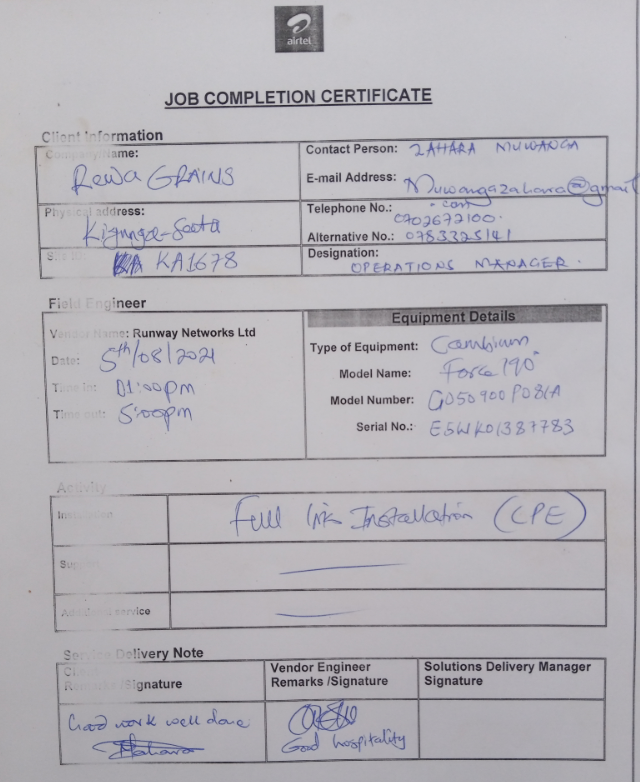 airtel
JOB COMPLETION CERTIFICATE
Client Information
Company Name:
Rewa GRAINS
Contact Person: ZAHARA MUWANGA
E-mail Address: Muwangazahara@gmail
.com
Physical address:
Kigunga-Seeta
Telephone No.: 0702672100.
Alternative No.: 0783325141
Site ID: KA1678
Designation: OPERATIONS MANAGER.
Field Engineer
Vendor Name: Runway Networks Ltd
Date: 5th/08/2021
Time in: 01:00pm
Time out: 5:00pm
Equipment Details
Type of Equipment: Cambium
Model Name: Force 190
Model Number: C050900P081A
Serial No.: E5WK01387783
Activity
Installation Full link Installation (CPE)
Support
Additional service
Service Delivery Note
Client
Remarks /Signature
Vendor Engineer
Remarks /Signature
Solutions Delivery Manager
Signature
Good work well done
Zahara
Good hospitality